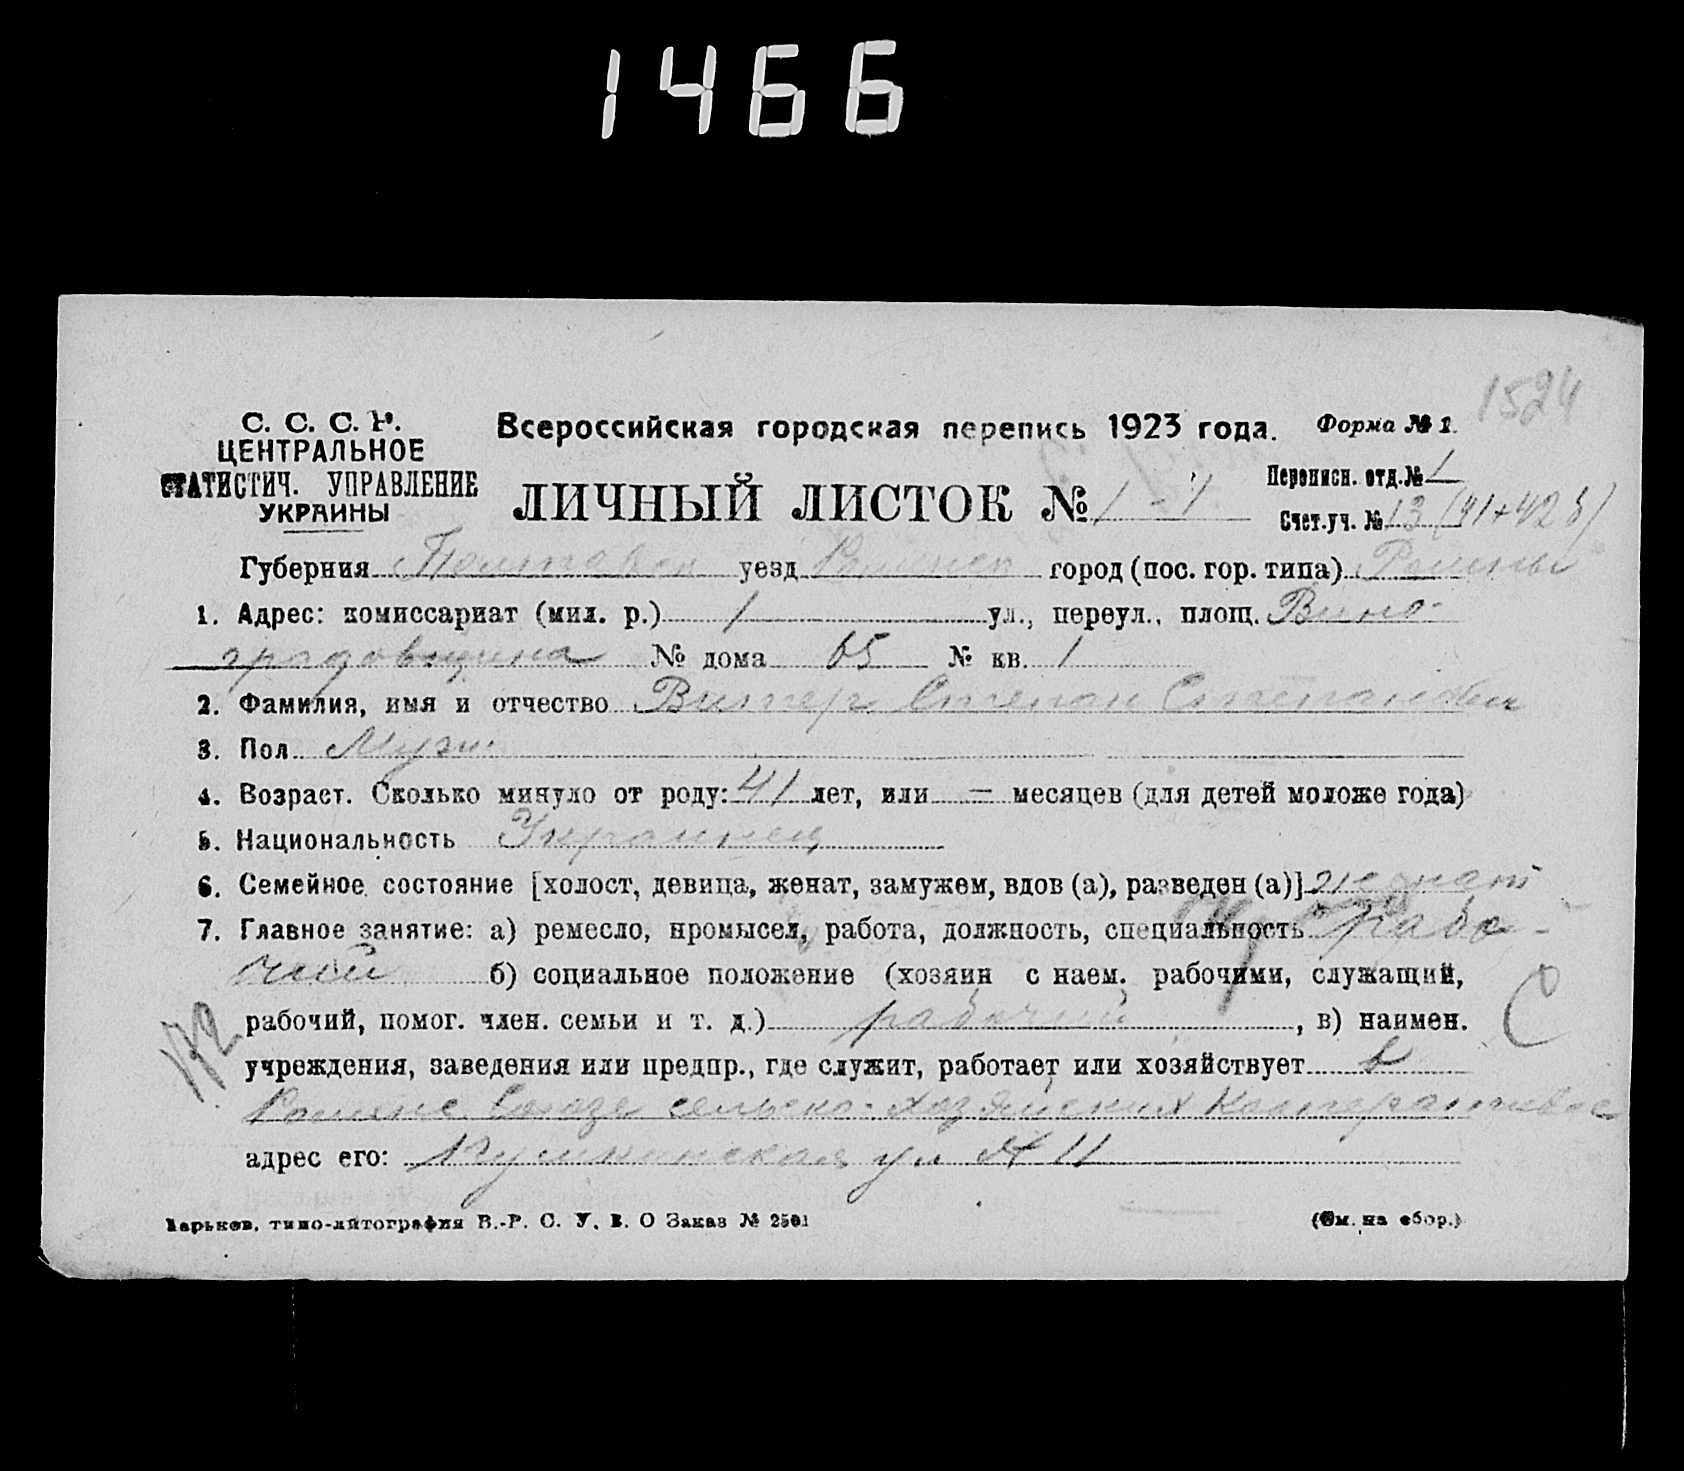 1466
1524
С. С. С. Р.
ЦЕНТРАЛЬНОЕ
СТАТИСТИЧ. УПРАВЛЕНИЕ
УКРАИНЫ
Всероссийская городская перепись 1923 года.
Форма № 1.
ЛИЧНЫЙ ЛИСТОК № 1 - 1
Переписн. отд. № 1
Счет. уч. № 13 (41+42 б)
Губерния Полтавск уезд Роменск город (пос. гор. типа) Ромны
1. Адрес: комиссариат (мил. р.) 1 ул., переул., площ. Вино-
градовщина № дома 65 № кв. 1
2. Фамилия, имя и отчество Витер Степан Степанович
3. Пол Муж.
4. Возраст. Сколько минуло от роду: 41 лет, или — месяцев (для детей моложе года)
5. Национальность Украинец
6. Семейное состояние [холост, девица, женат, замужем, вдов (а), разведен (а)] женат
7. Главное занятие: а) ремесло, нромысел, работа, должность, специальность рабо-
чий б) социальное положение (хозяин с наем. рабочими, служащий,
рабочий, помог. член. семьи и т. д.) рабочий, в) наимен.
учреждения, заведения или предпр., где служит, работает или хозяйствует в
Роменс. Союзе сельско-хозяйских Кооперативов
адрес его: Пушкинская ул № 11
С
Харьков, типо-литография В.-Р. С. У. В. О Заказ № 2501
(См. на обор.)